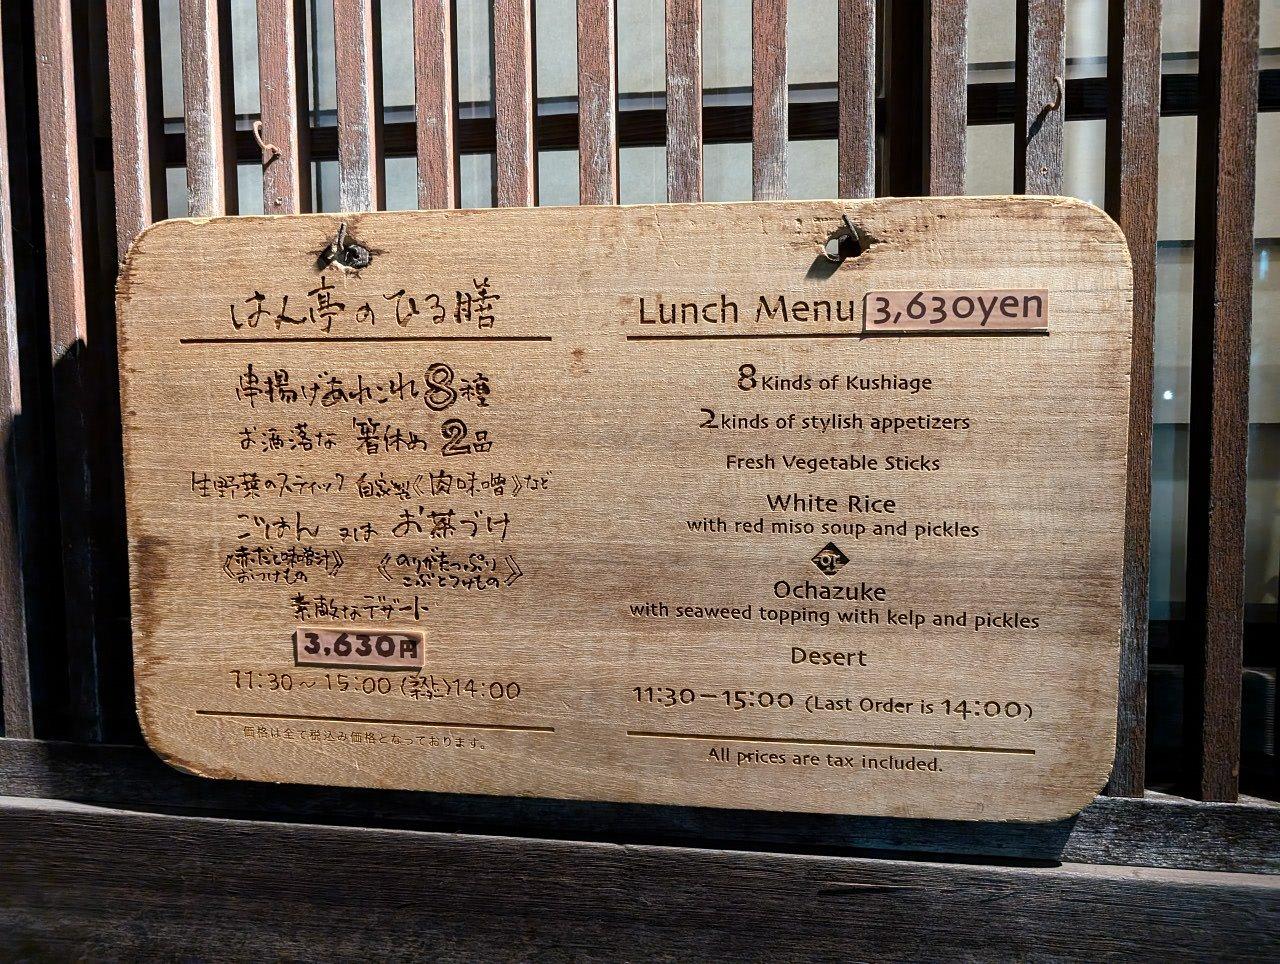 はん亭のひる膳
串揚げあれこれ8種
お洒落な箸休め2品
生野菜のスティック 自家製《肉味噌》など
ごはん 又は お茶づけ
《赤だし味噌汁 おつけもの》 《のりがたっぷり こぶとつけもの》
素敵なデザート
3,630円
11:30～15:00 (ラスト)14:00
価格は全て税込み価格となっております。
Lunch Menu 3,630yen
8 Kinds of Kushiage
2 kinds of stylish appetizers
Fresh Vegetable Sticks
White Rice
with red miso soup and pickles
or
Ochazuke
with seaweed topping with kelp and pickles
Desert
11:30－15:00 (Last Order is 14:00)
All prices are tax included.